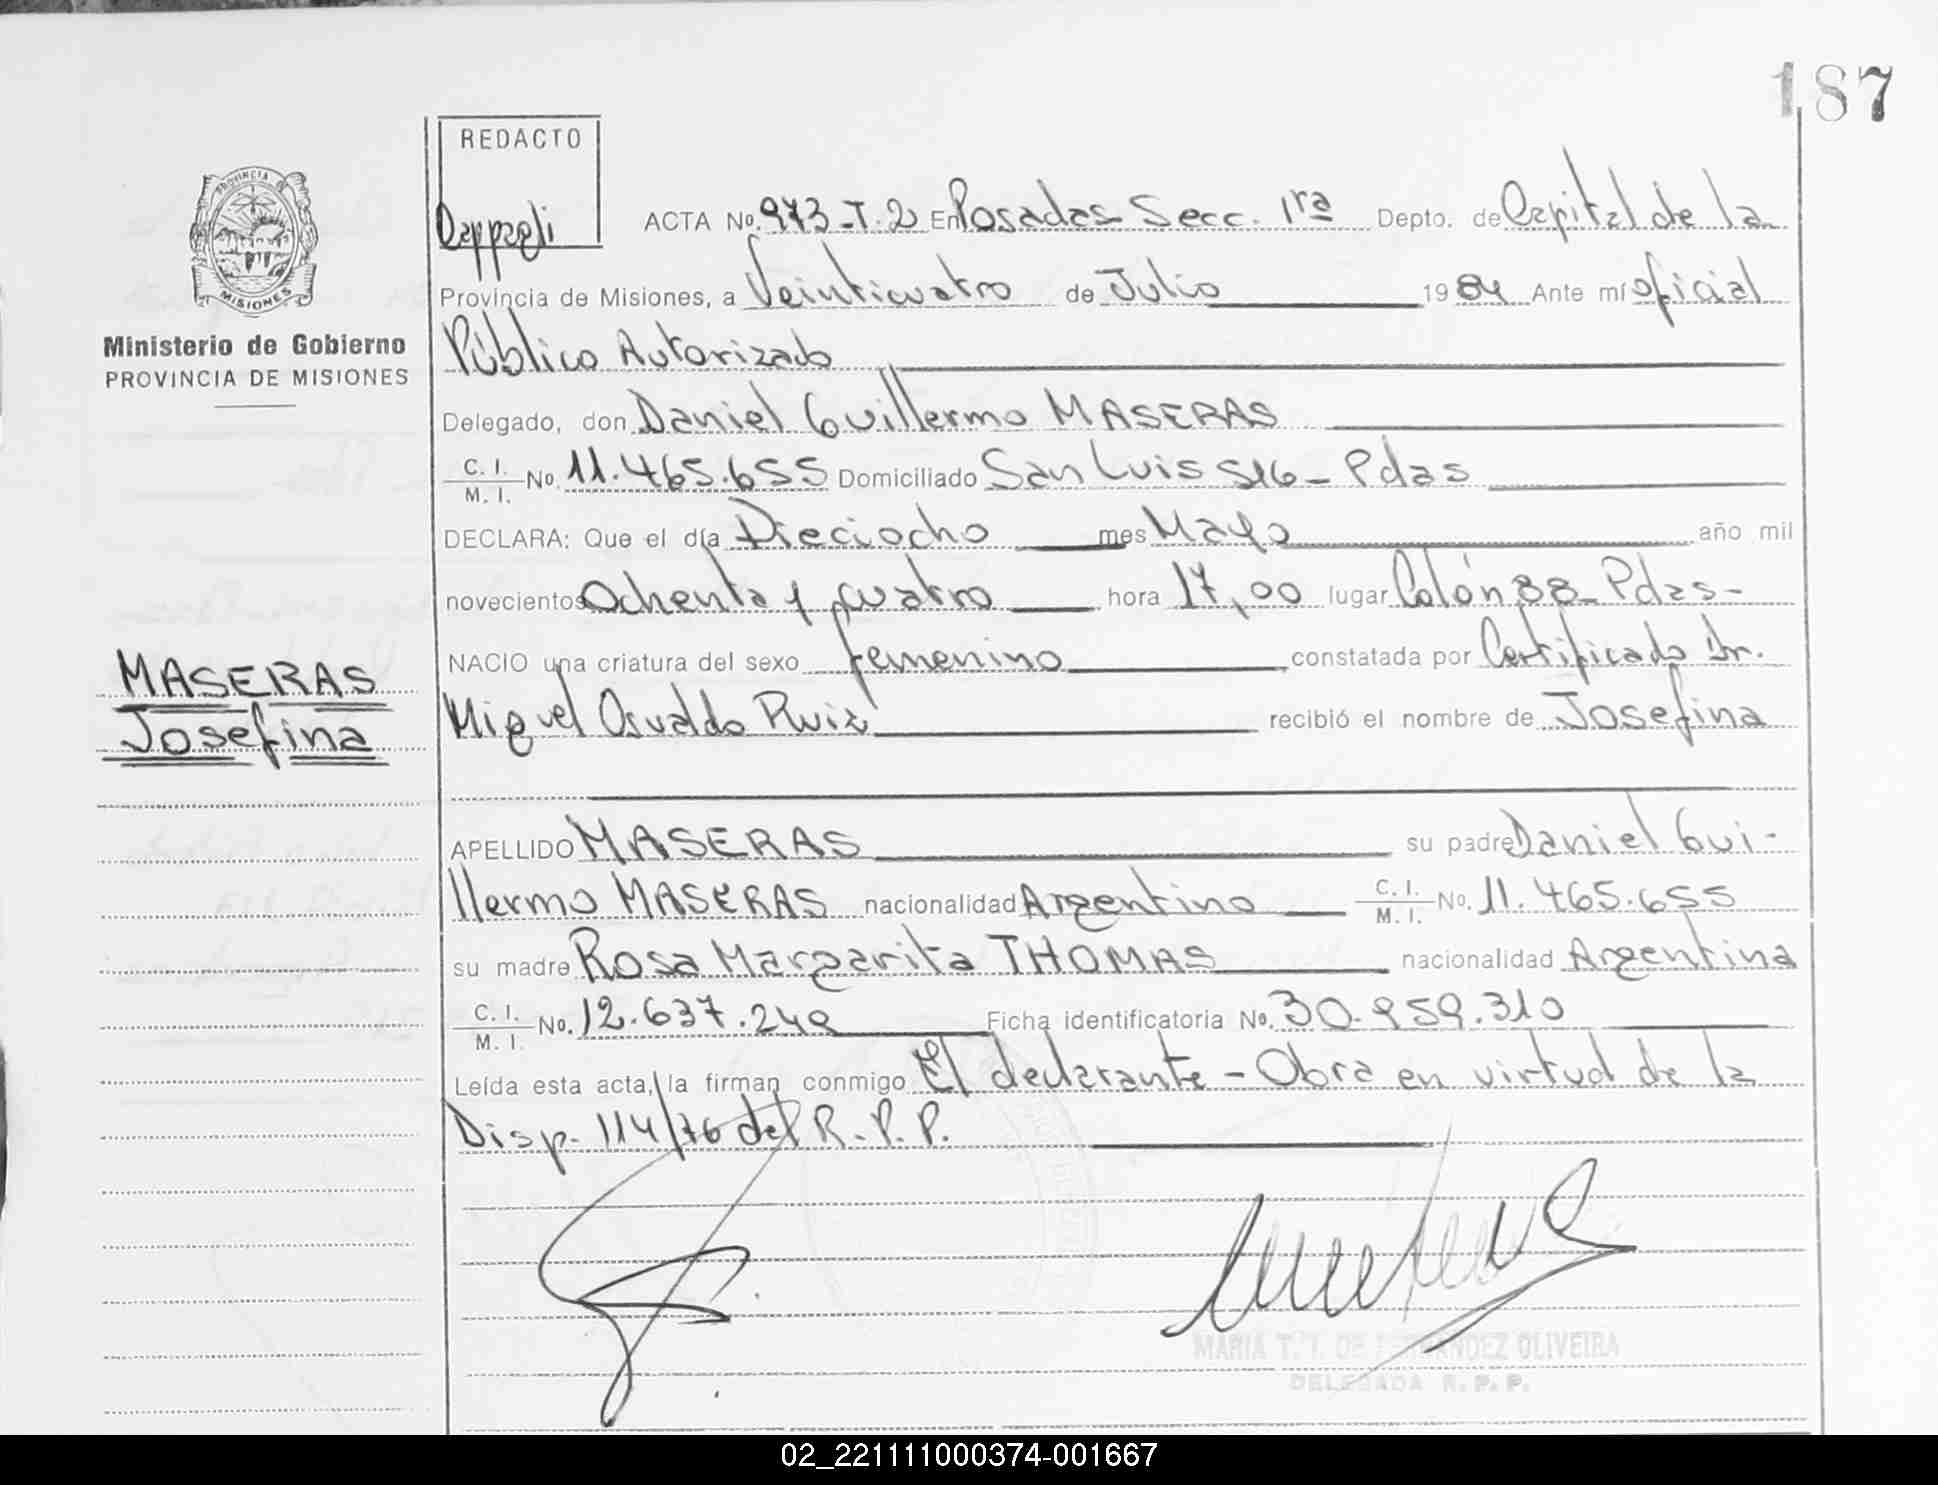 187
REDACTO
PROVINCIA DE
MISIONES
Ministerio de Gobierno
PROVINCIA DE MISIONES
MASERAS
Josefina
ACTA No. 973-T.2 En Posadas Secc. 1ra Depto. de Capital de la
Provincia de Misiones, a Veinticuatro de Julio 1984 Ante mí oficial
Público Autorizado
Delegado, don Daniel Guillermo MASERAS
C. I. M. I. No. 11.465.655 Domiciliado San Luis 516 - Pdas
DECLARA: Que el día Dieciocho mes Mayo año mil
novecientos Ochenta y cuatro hora 17,00 lugar Colón 88 - Pdas -
NACIO una criatura del sexo femenino constatada por Certificado Dr.
Miguel Osvaldo Ruiz recibió el nombre de Josefina
APELLIDO MASERAS su padre Daniel Gui-
llermo MASERAS nacionalidad Argentino C. I. M. I. No. 11.465.655
su madre Rosa Margarita THOMAS nacionalidad Argentina
C. I. M. I. No. 12.637.249 Ficha identificatoria No. 30.959.310
Leída esta acta, la firman conmigo El declarante - Obra en virtud de la
Disp. 114/76 del R.P.P.
MARIA T. DE FERNANDEZ OLIVEIRA
DELEGADA R.P.P.
02_221111000374-001667